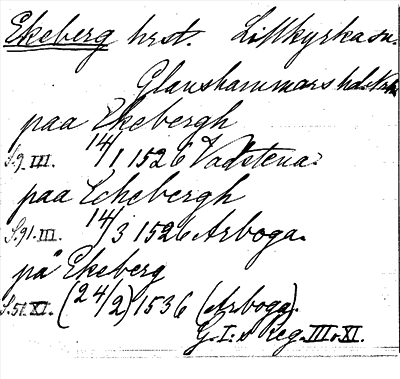 Ekeberg hrst. Lillkyrka sn.
Glanshammars hd.
paa Ekebergh
S.9.III. 14/1 1526 Vadstena.
paa Eckebergh
S.91.III. 14/3 1526 Arboga.
på Ekeberg
S.51.XI. (24/2) 1536 (Arboga).
G. I:s Reg. III o XI.